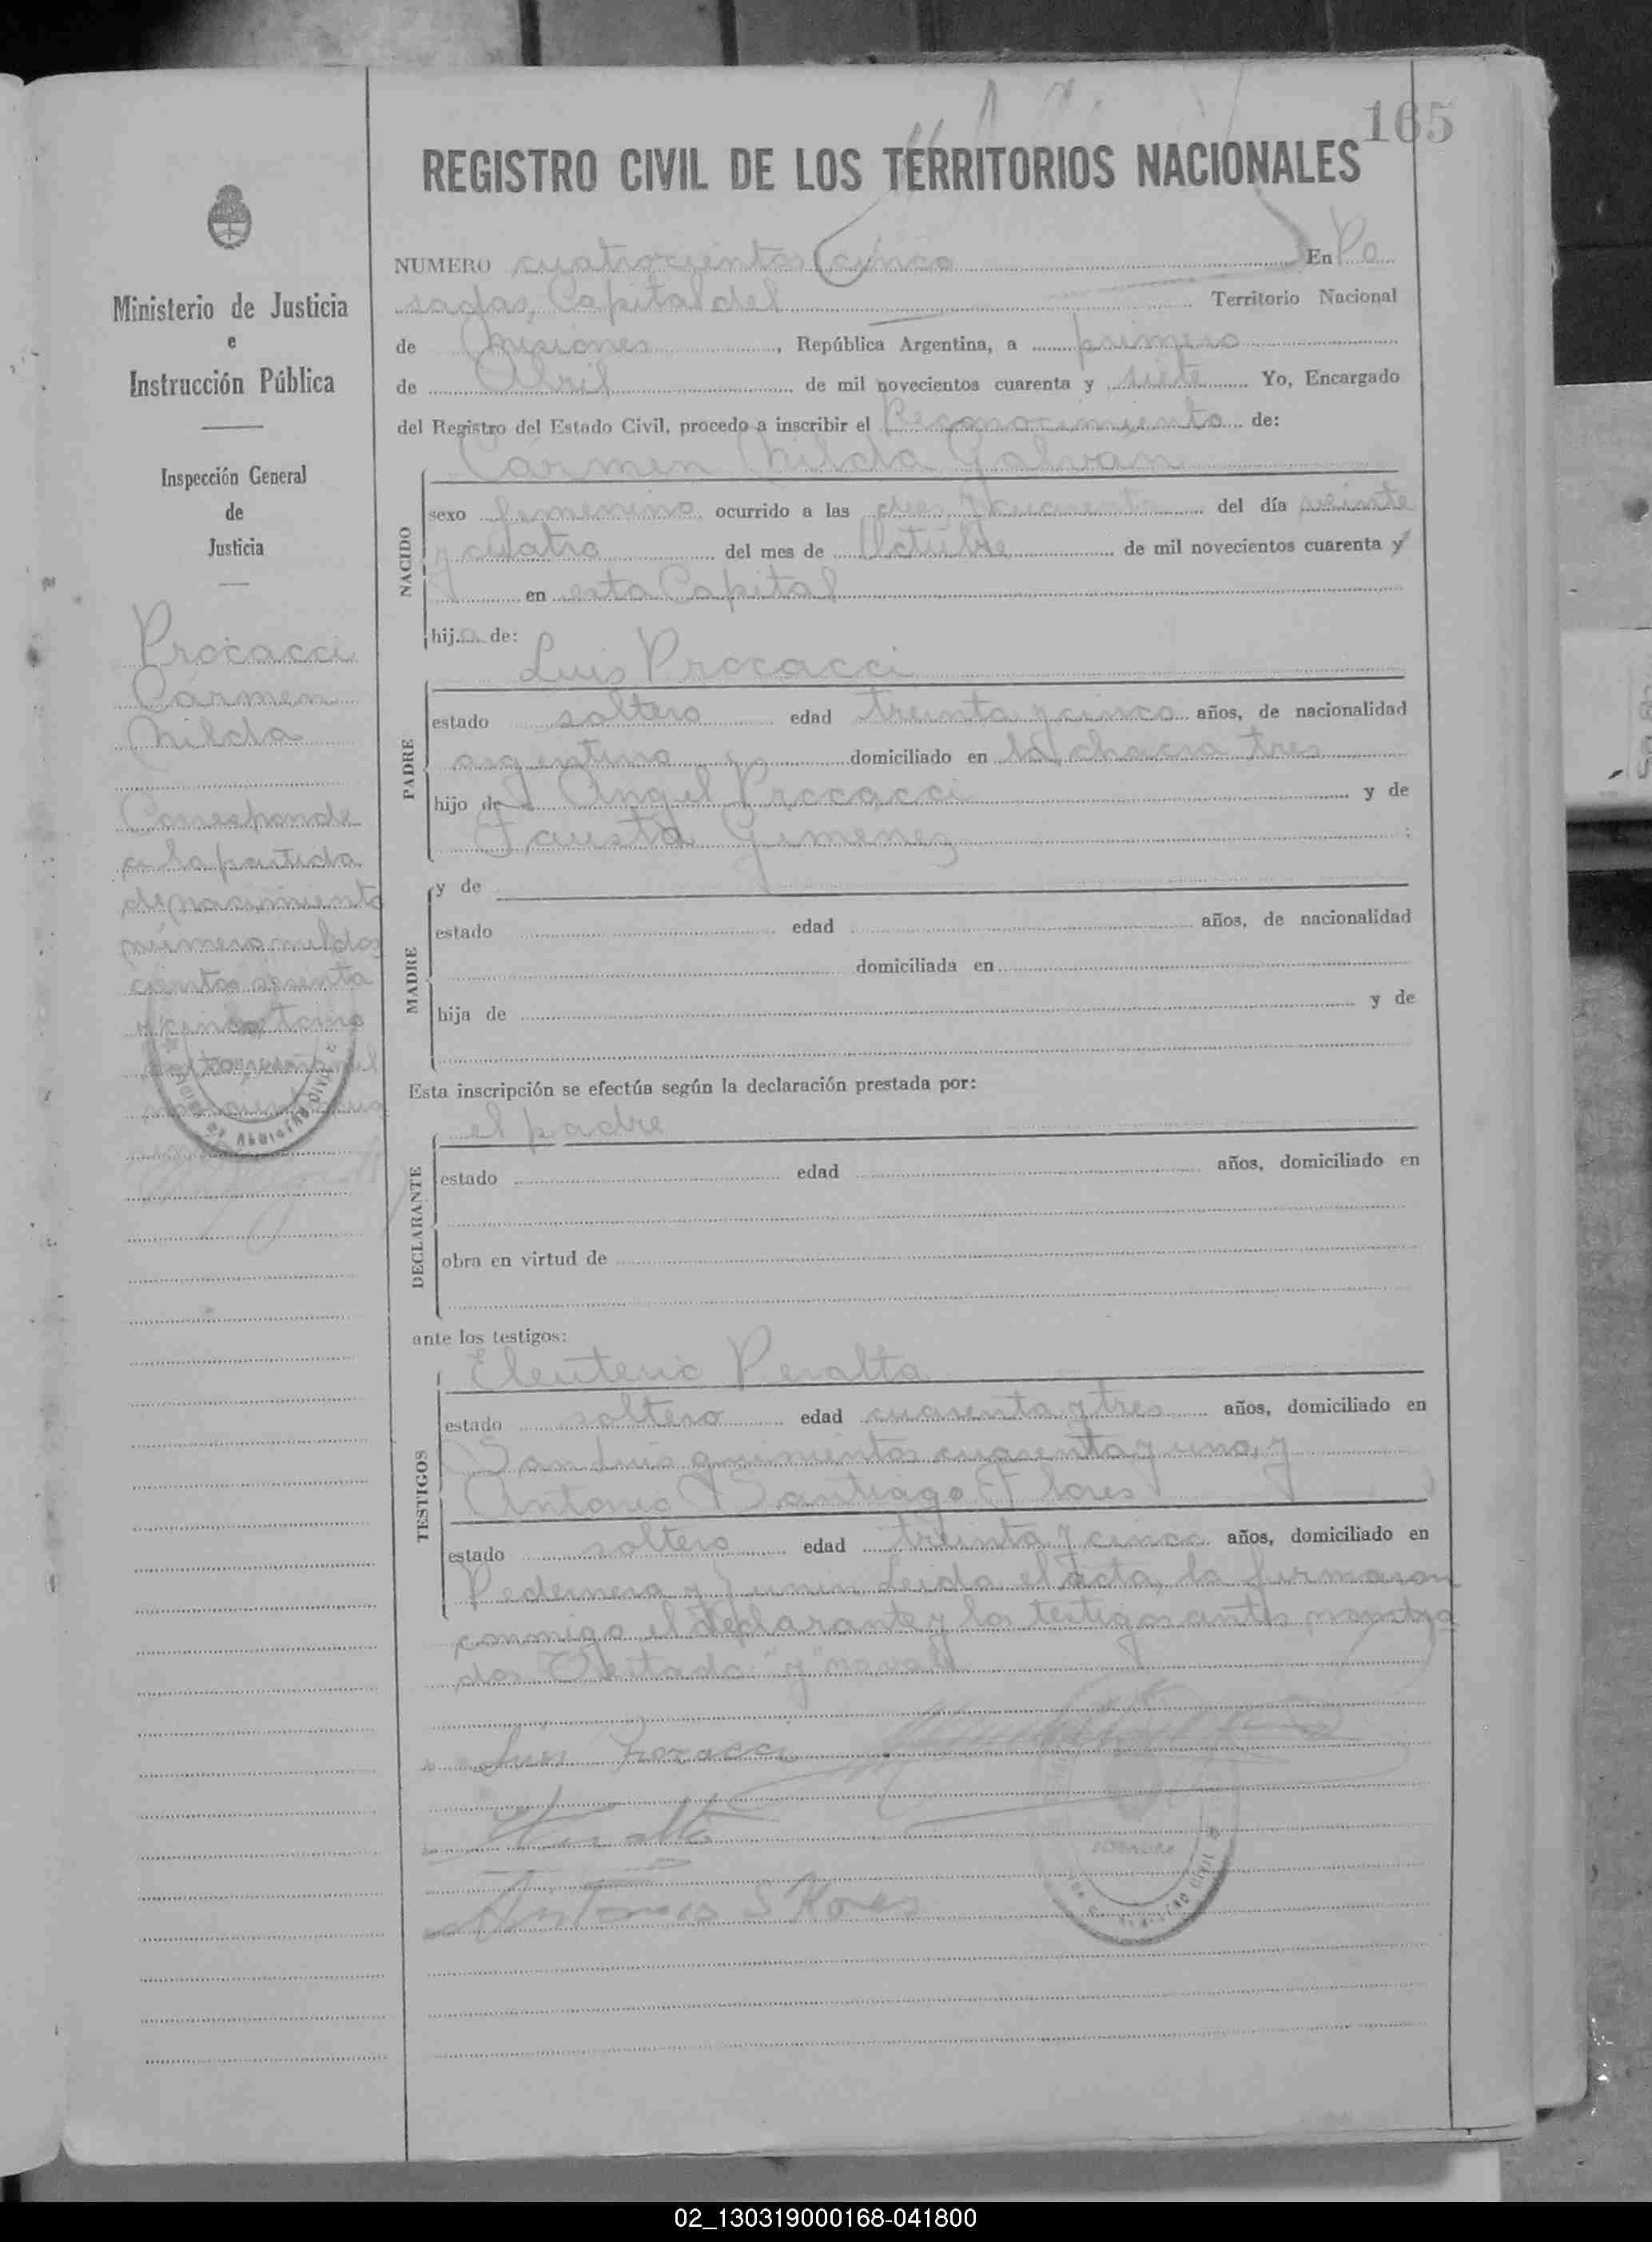 165
REGISTRO CIVIL DE LOS TERRITORIOS NACIONALES
NUMERO cuatrocientos cinco En Po
sadas, Capital del Territorio Nacional
de Misiones, República Argentina, a primero
de Abril de mil novecientos cuarenta y siete Yo, Encargado
del Registro del Estado Civil, procedo a inscribir el Reconocimiento de:
Carmen Nilda Galvan
NACIDO
sexo femenino ocurrido a las del día veinte
y cuatro del mes de Octubre de mil novecientos cuarenta y
en esta Capital
hija de:
Luis Procacci
PADRE
estado soltero edad treinta y cinco años, de nacionalidad
argentino domiciliado en la chacra tres
hijo de Angel Procacci y de
Fausta Gimenez :
MADRE
y de
estado edad años, de nacionalidad
domiciliada en
hija de y de
Esta inscripción se efectúa según la declaración prestada por:
el padre
DECLARANTE
estado edad años, domiciliado en
obra en virtud de
ante los testigos:
TESTIGOS
Eleuterio Peralta
estado soltero edad cuarenta y tres años, domiciliado en
San Luis quinientos cuarenta y uno, y
Antonio Santiago Flores
estado soltero edad treinta y cinco años, domiciliado en
Pedernera y Junin Leida el acta, la firmaron
conmigo el declarante y los testigos antes nombra
dos "y" no vale
Luis Procacci
Antonio S Flores
POSADAS
REGISTRO CIVIL
Ministerio de Justicia
e
Instrucción Pública
Inspección General
de
Justicia
Procacci
Carmen
Nilda
Corresponde
a la partida
de nacimiento
numero mil dos
cientos sesenta
y cinco tomo
REGISTRO CIVIL
02_130319000168-041800